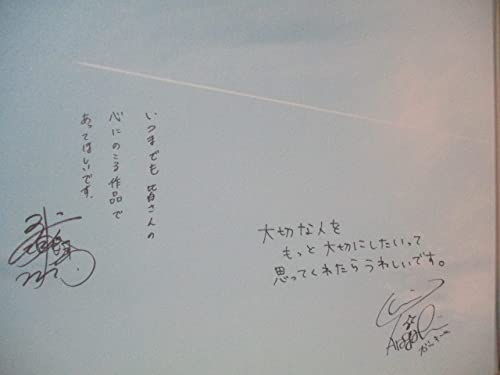 いつまでも皆さんの
心にのこる作品で
あってほしいです。
大切な人を
もっと大切にしたいって
思ってくれたらうれしいです。